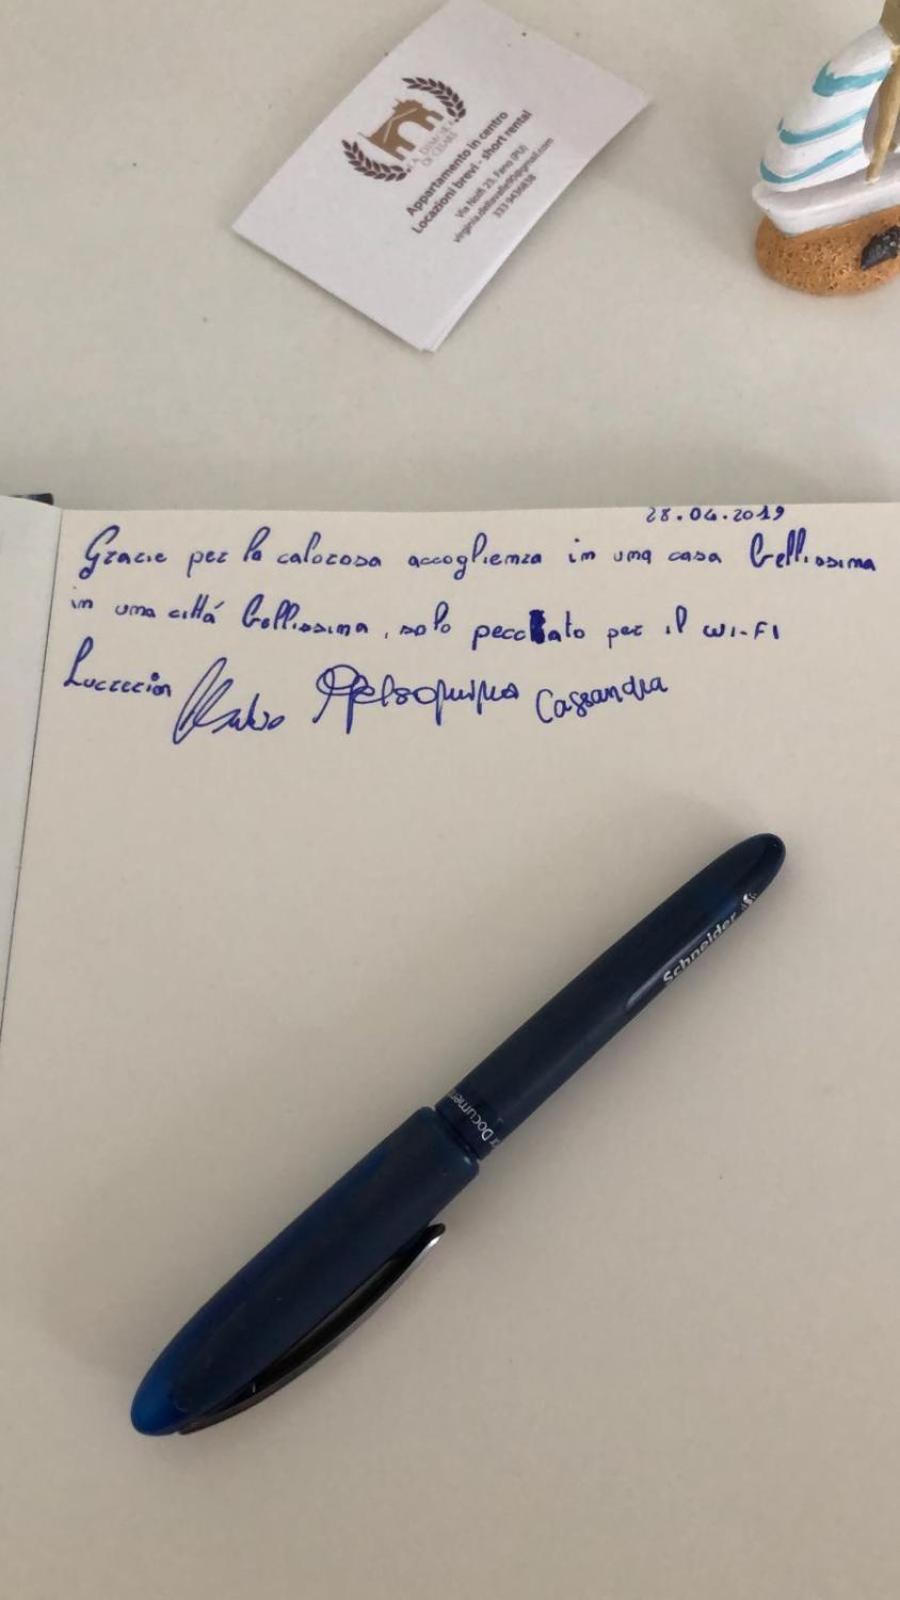 LA DIMORA
DI CESARE
Appartamento in centro
Locazioni brevi - short rental
Via Nolfi 23, Fano (PU)
28.04.2019
Grazie per la calorosa accoglienza in una casa bellissima
in una cittá bellissima, solo peccato per il WI-FI
Lucrezia Cassandra
Schneider
Document